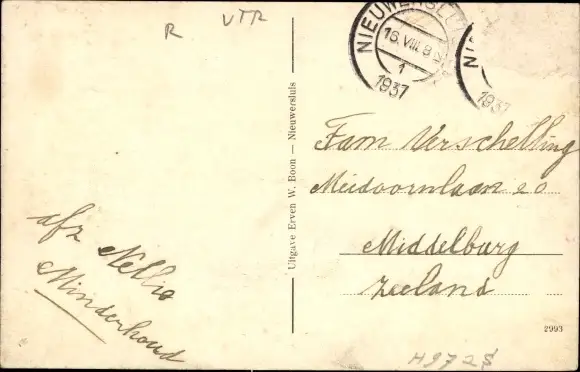 R VTR
NIEUWERSLUIS
16.VIII.8
1
1937
1937
Fam Verschelling
Meidoornlaan 20
Middelburg
Zeeland
Uitgave Erven W. Boon — Nieuwersluis
afz Nellie
Minderhoud
2993